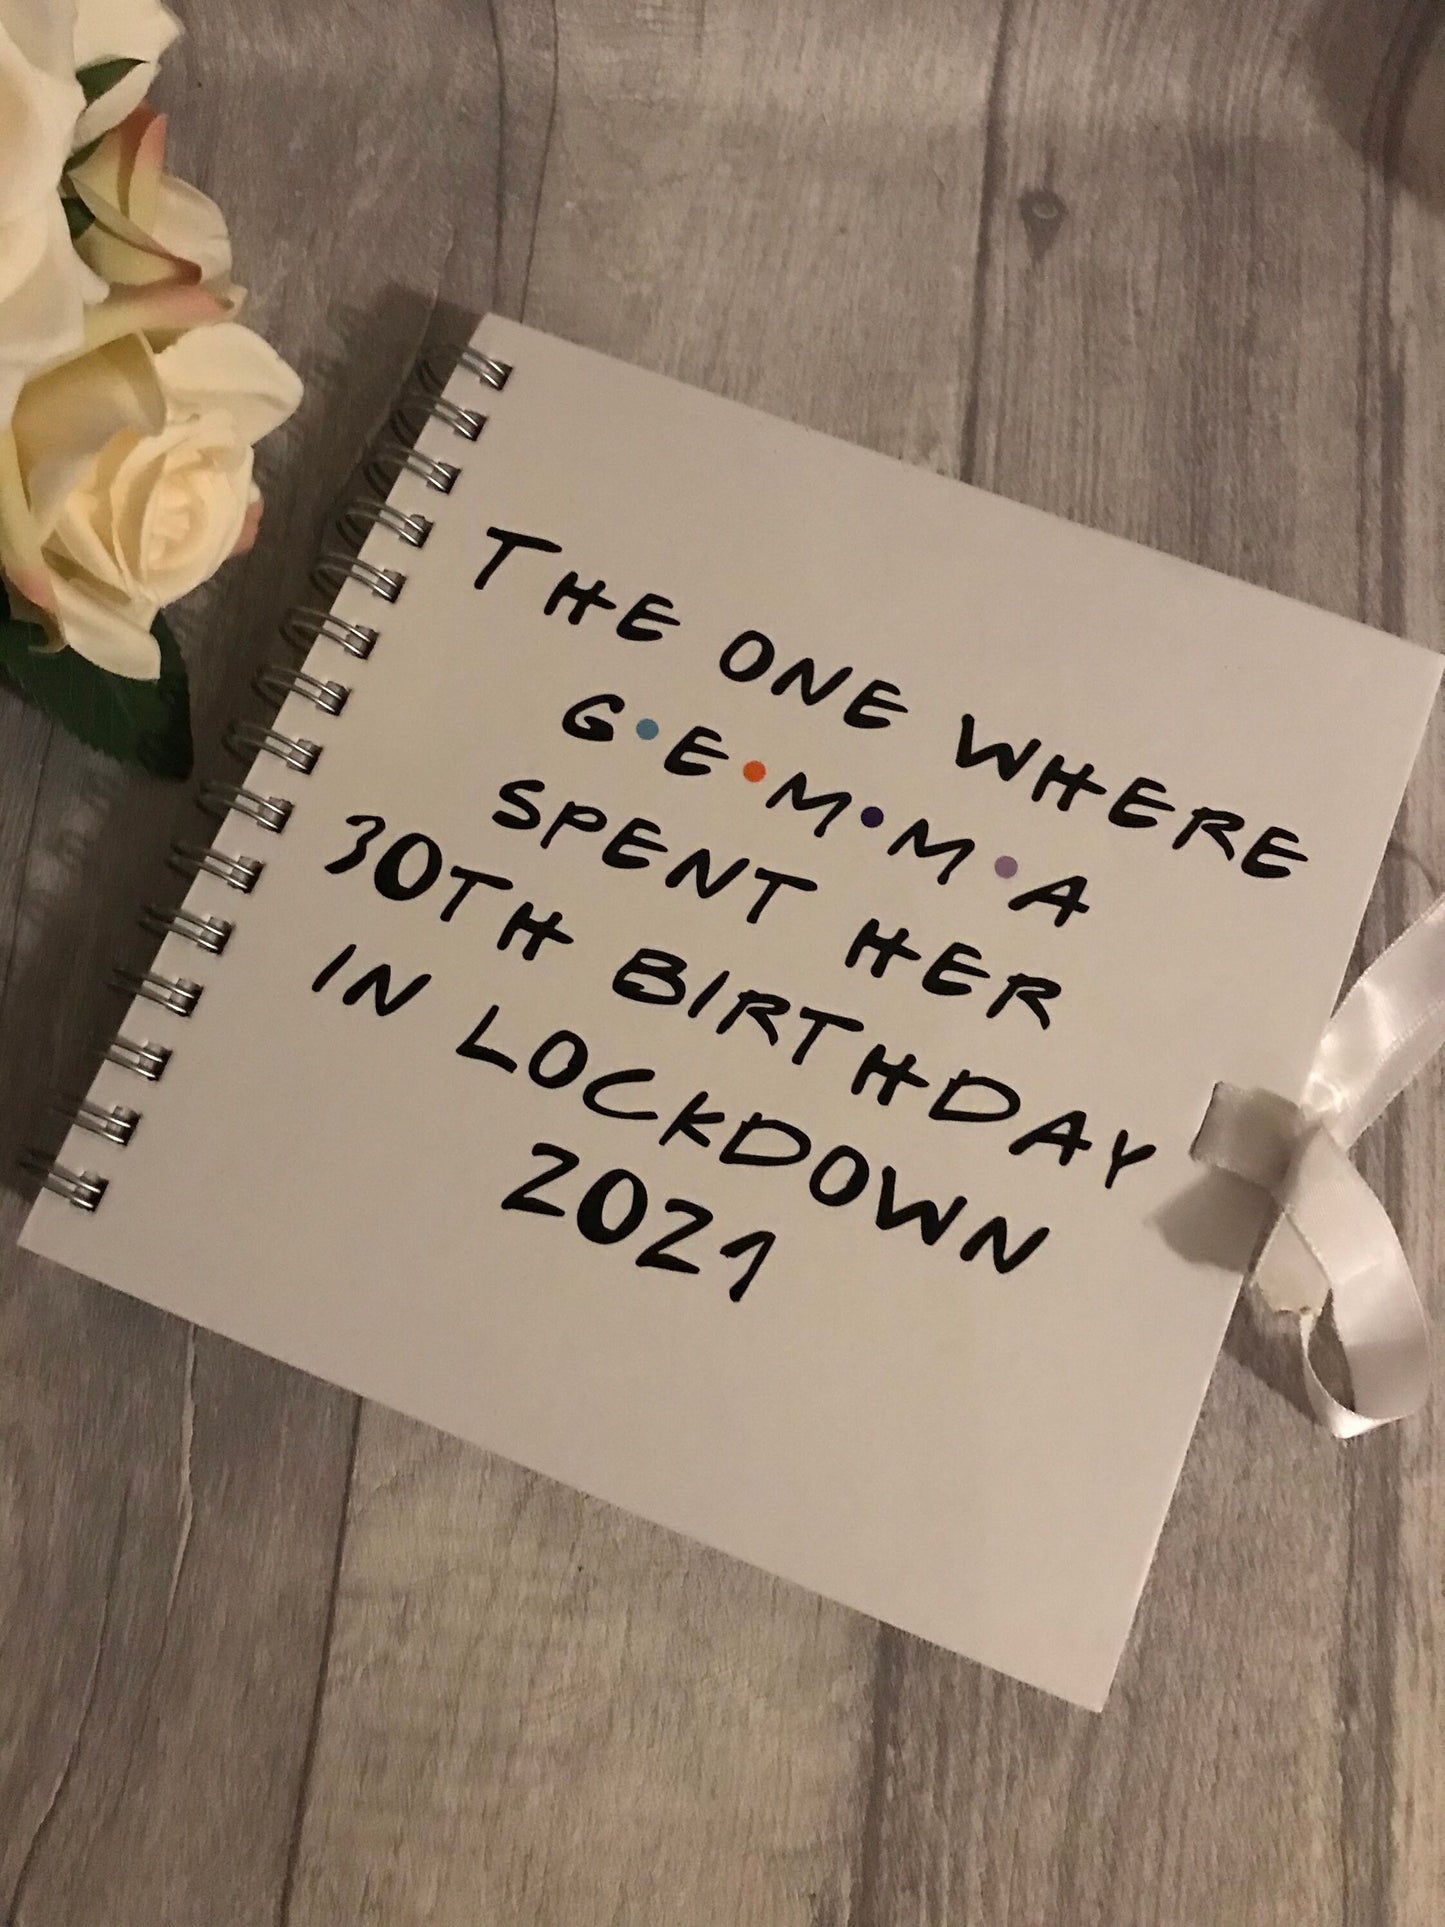 THE ONE WHERE
G•E•M•M•A
SPENT HER
30TH BIRTHDAY
IN LOCKDOWN
2021